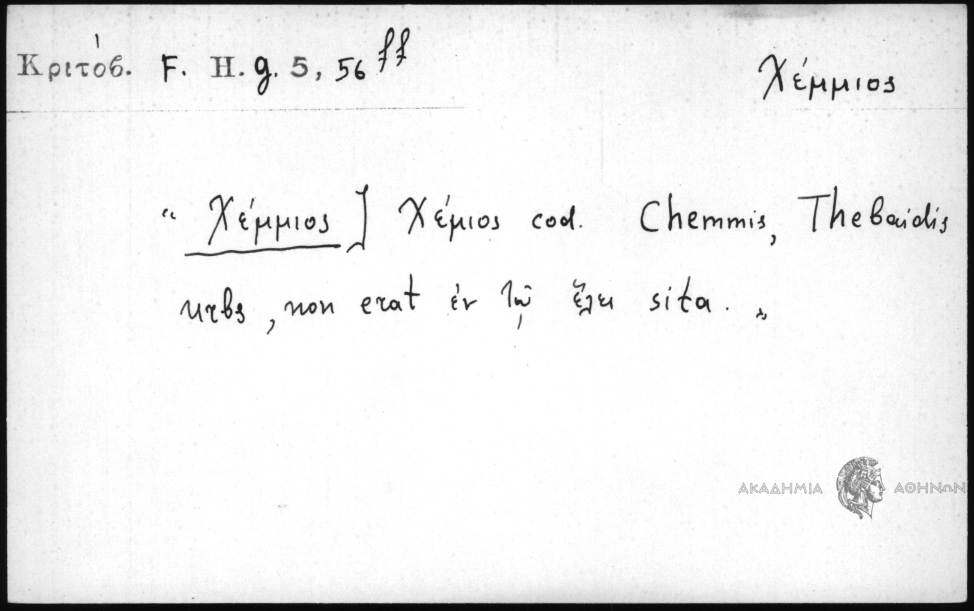 Κριτόβ. F. H. g. 5, 56 ff
Χέμμιος
“ Χέμμιος ] Χέμιος cod. Chemmis, Thebaidis
urbs, non erat ἐν τῷ ἕλει sita. „
ΑΚΑΔΗΜΙΑ ΑΘΗΝΩΝ